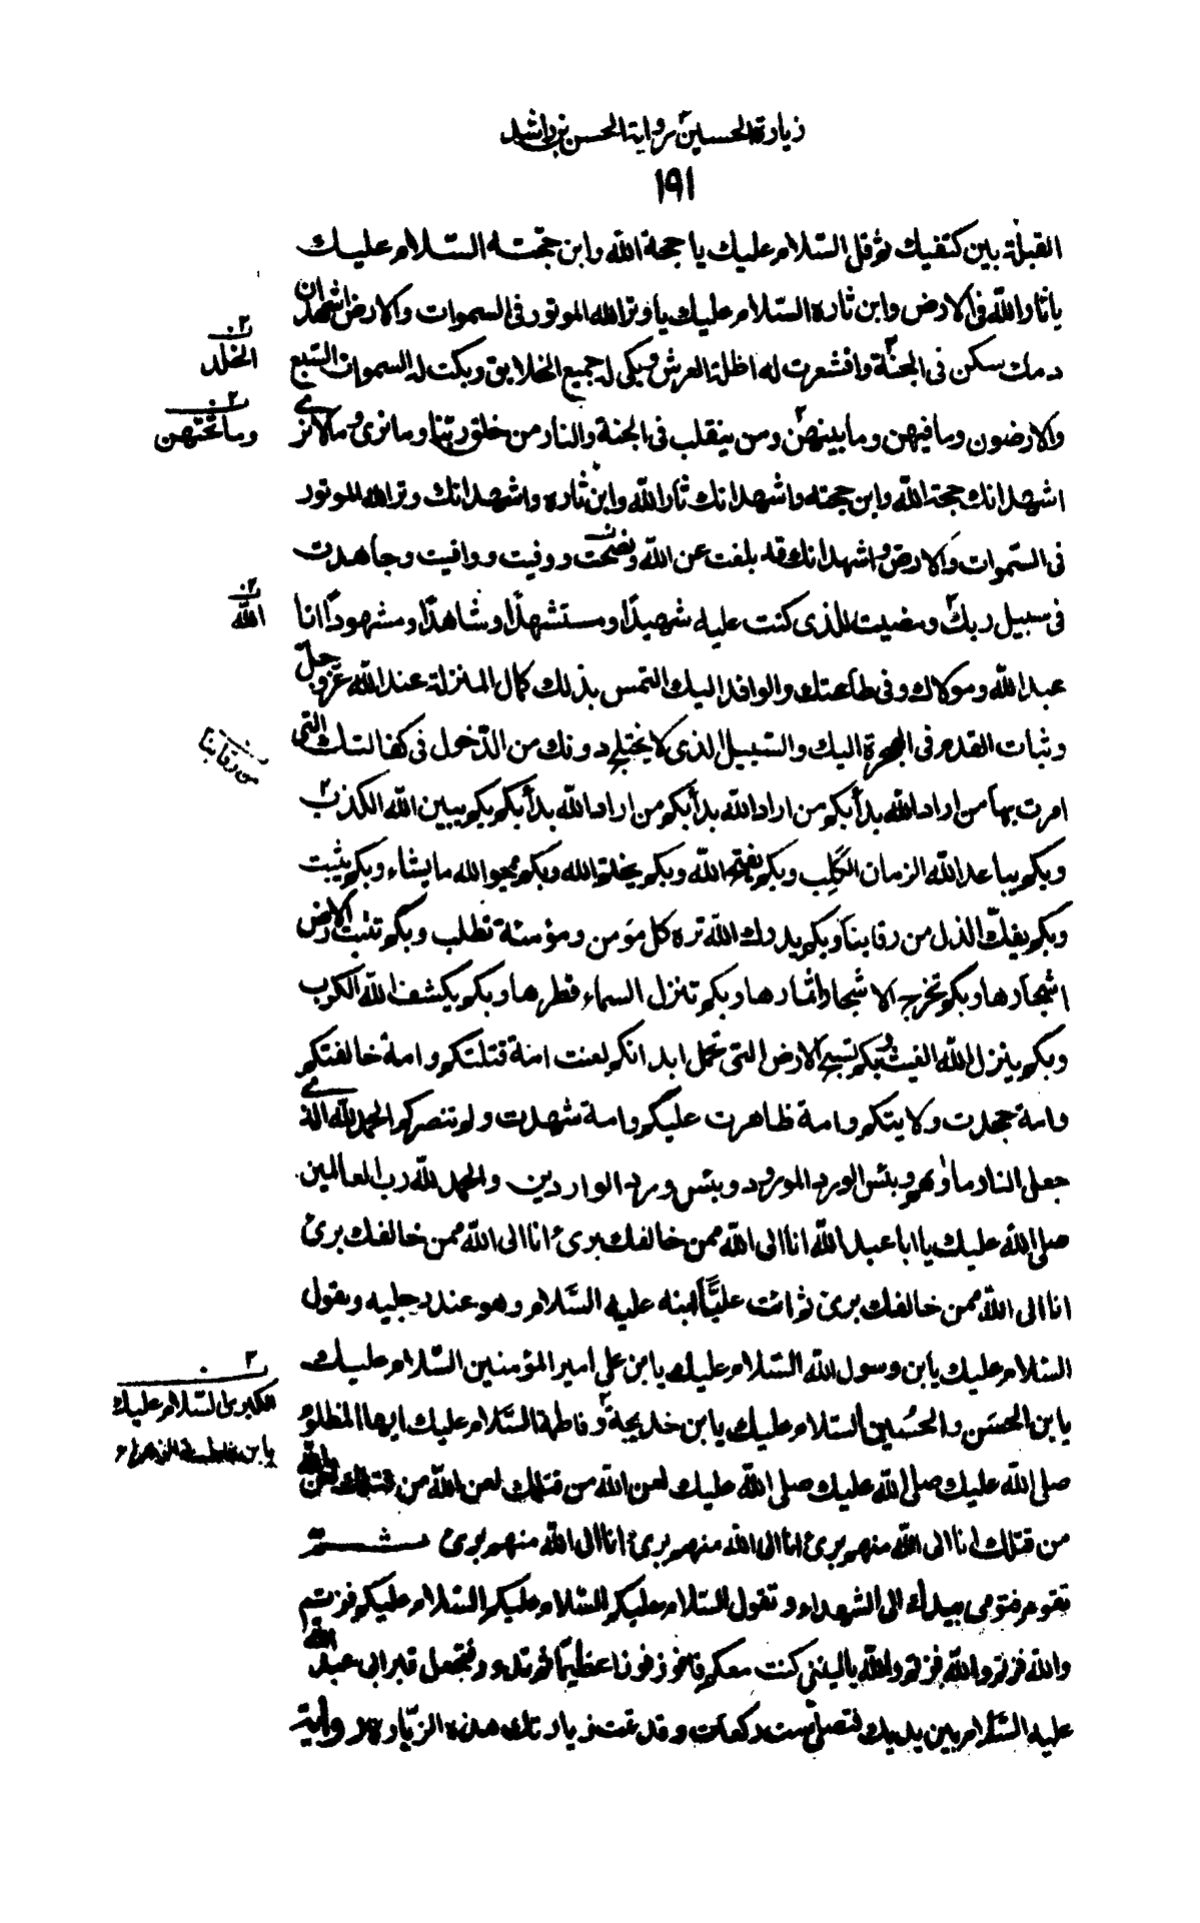 زيارة الحسين برواية الحسن بن راشد
١٩١
القبلة بين كتفيك ثم قل السّلام عليك يا حجة اللّه وابن حجّته السّلام عليك
يا ثار اللّه فى الارض وابن ثاره السّلام عليك يا وتر اللّه الموتور فى السموات والارض اشهد ان
دمك سكن فى الجنّة واقشعرت له اظلة العرش وبكى له جميع الخلايق وبكت له السموات السّبع
والارضون وما فيهن وما بينهنّ ومن ينقلب فى الجنة والنار من خلق ربّنا وما نرى وما لا نرى
اشهد انك حجة اللّه وابن حجته واشهد انك ثار اللّه وابن ثاره واشهد انك وتر اللّه الموتور
فى السّموات والارض واشهد انك قد بلغت عن اللّه ونصحت ووفيت ووافيت وجاهدت
فى سبيل ربك ومضيت للذى كنت عليه شهيدًا ومستشهدًا وشاهدًا ومشهودًا انا
عبد اللّه ومولاك وفى طاعتك والوافد اليك التمس بذلك كمال المنزلة عند اللّه عزّ وجلّ
وثبات القدم فى الهجرة اليك والسّبيل الذى لا يختلج دونك من الدّخول فى كفالتك التى
امرت بها من اراد اللّه بدأ بكم من اراد اللّه بدأ بكم من اراد اللّه بدأ بكم بكم يبين اللّه الكذب
وبكم يباعد اللّه الزمان الكَلِب وبكم يفتح اللّه وبكم يختم اللّه وبكم يمحو اللّه ما يشاء وبكم يثبت
وبكم يفكّ الذل من رقابنا وبكم يدرك اللّه ترة كل مؤمن ومؤمنة تطلب وبكم تنبت الارض
اشجارها وبكم تخرج الاشجار اثمارها وبكم تنزل السماء قطرها وبكم يكشف اللّه الكرب
وبكم ينزل اللّه الغيث وبكم تسيخ الارض التى تحمل ابدانكم لعنت امة قتلتكم وامة خالفتكم
وامة جحدت ولايتكم وامة ظاهرت عليكم وامة شهدت ولم تنصركم الحمد للّه الذى
جعل النار ماويهم وبئس الورد المورود وبئس ورد الواردين والحمد للّه رب العالمين
صلى اللّه عليك يا ابا عبد اللّه انا الى اللّه ممن خالفك برئ انا الى اللّه ممن خالفك برئ
انا الى اللّه ممن خالفك برئ ثم ائت عليًّا ابنه عليه السّلام وهو عند رجليه وتقول
السّلام عليك يا بن رسول اللّه السّلام عليك يا بن على امير المؤمنين السّلام عليك
يا بن الحسَن والحُسين السّلام عليك يا بن خديجة وفاطمة السّلام عليك ايها المظلوم
صلى اللّه عليك صلى اللّه عليك صلى اللّه عليك لعن اللّه من قتلك لعن اللّه من قتلك لعن اللّه
من قتلك انا الى اللّه منهم برئ انا الى اللّه منهم برئ انا الى اللّه منهم برئ ثم
تقوم فتومى بيدك الى الشهداء وتقول السّلام عليكم السّلام عليكم السّلام عليكم فزتم
واللّه فزتم واللّه فزتم واللّه يا ليتنى كنت معكم فافوز فوزا عظيمًا ثم تدور فتجعل قبر ابى عبد اللّه
عليه السّلام بين يديك فتصلى ست ركعات وقد تمت زيارتك هذه الزيارة رواية
الخلد
وما تحتهن
اللّه
من رقابنا
الكبرى السّلام عليك
يا بن فاطمة الزهراء